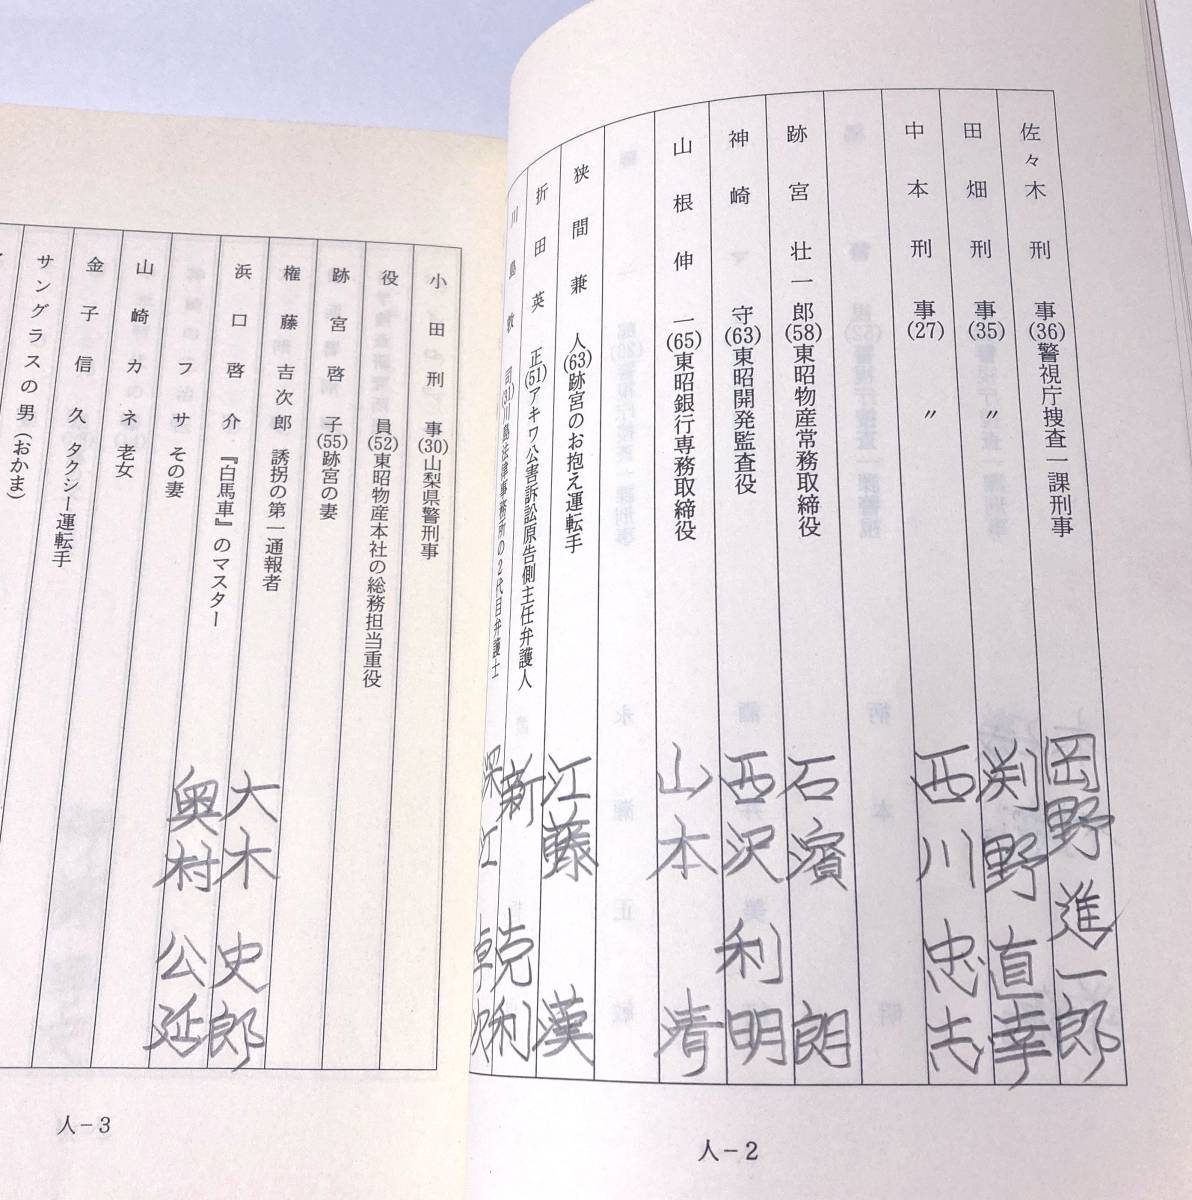 佐々木刑事(36)警視庁捜査一課刑事 岡野進一郎
田畑刑事(35)〃 渕野直幸
中本刑事(27)〃 西川忠志
跡宮壮一郎(58)東昭物産常務取締役 石濱朗
神崎守(63)東昭開発監査役 西沢利明
山根伸一(65)東昭銀行専務取締役 山本清
狭間兼人(63)跡宮のお抱え運転手 江藤漢
折田英正(51)アキワ公害訴訟原告側主任弁護人 新克利
川島敬司(31)川島法律事務所の2代目弁護士 深江卓次
人−2
小田刑事(30)山梨県警刑事
役員(52)東昭物産本社の総務担当重役
跡宮啓子(55)跡宮の妻
権藤吉次郎 誘拐の第一通報者
浜口啓介 『白馬車』のマスター 大木史郎
フサ その妻 奥村公延
山崎カネ 老女
金子信久 タクシー運転手
サングラスの男(おかま)
人−3